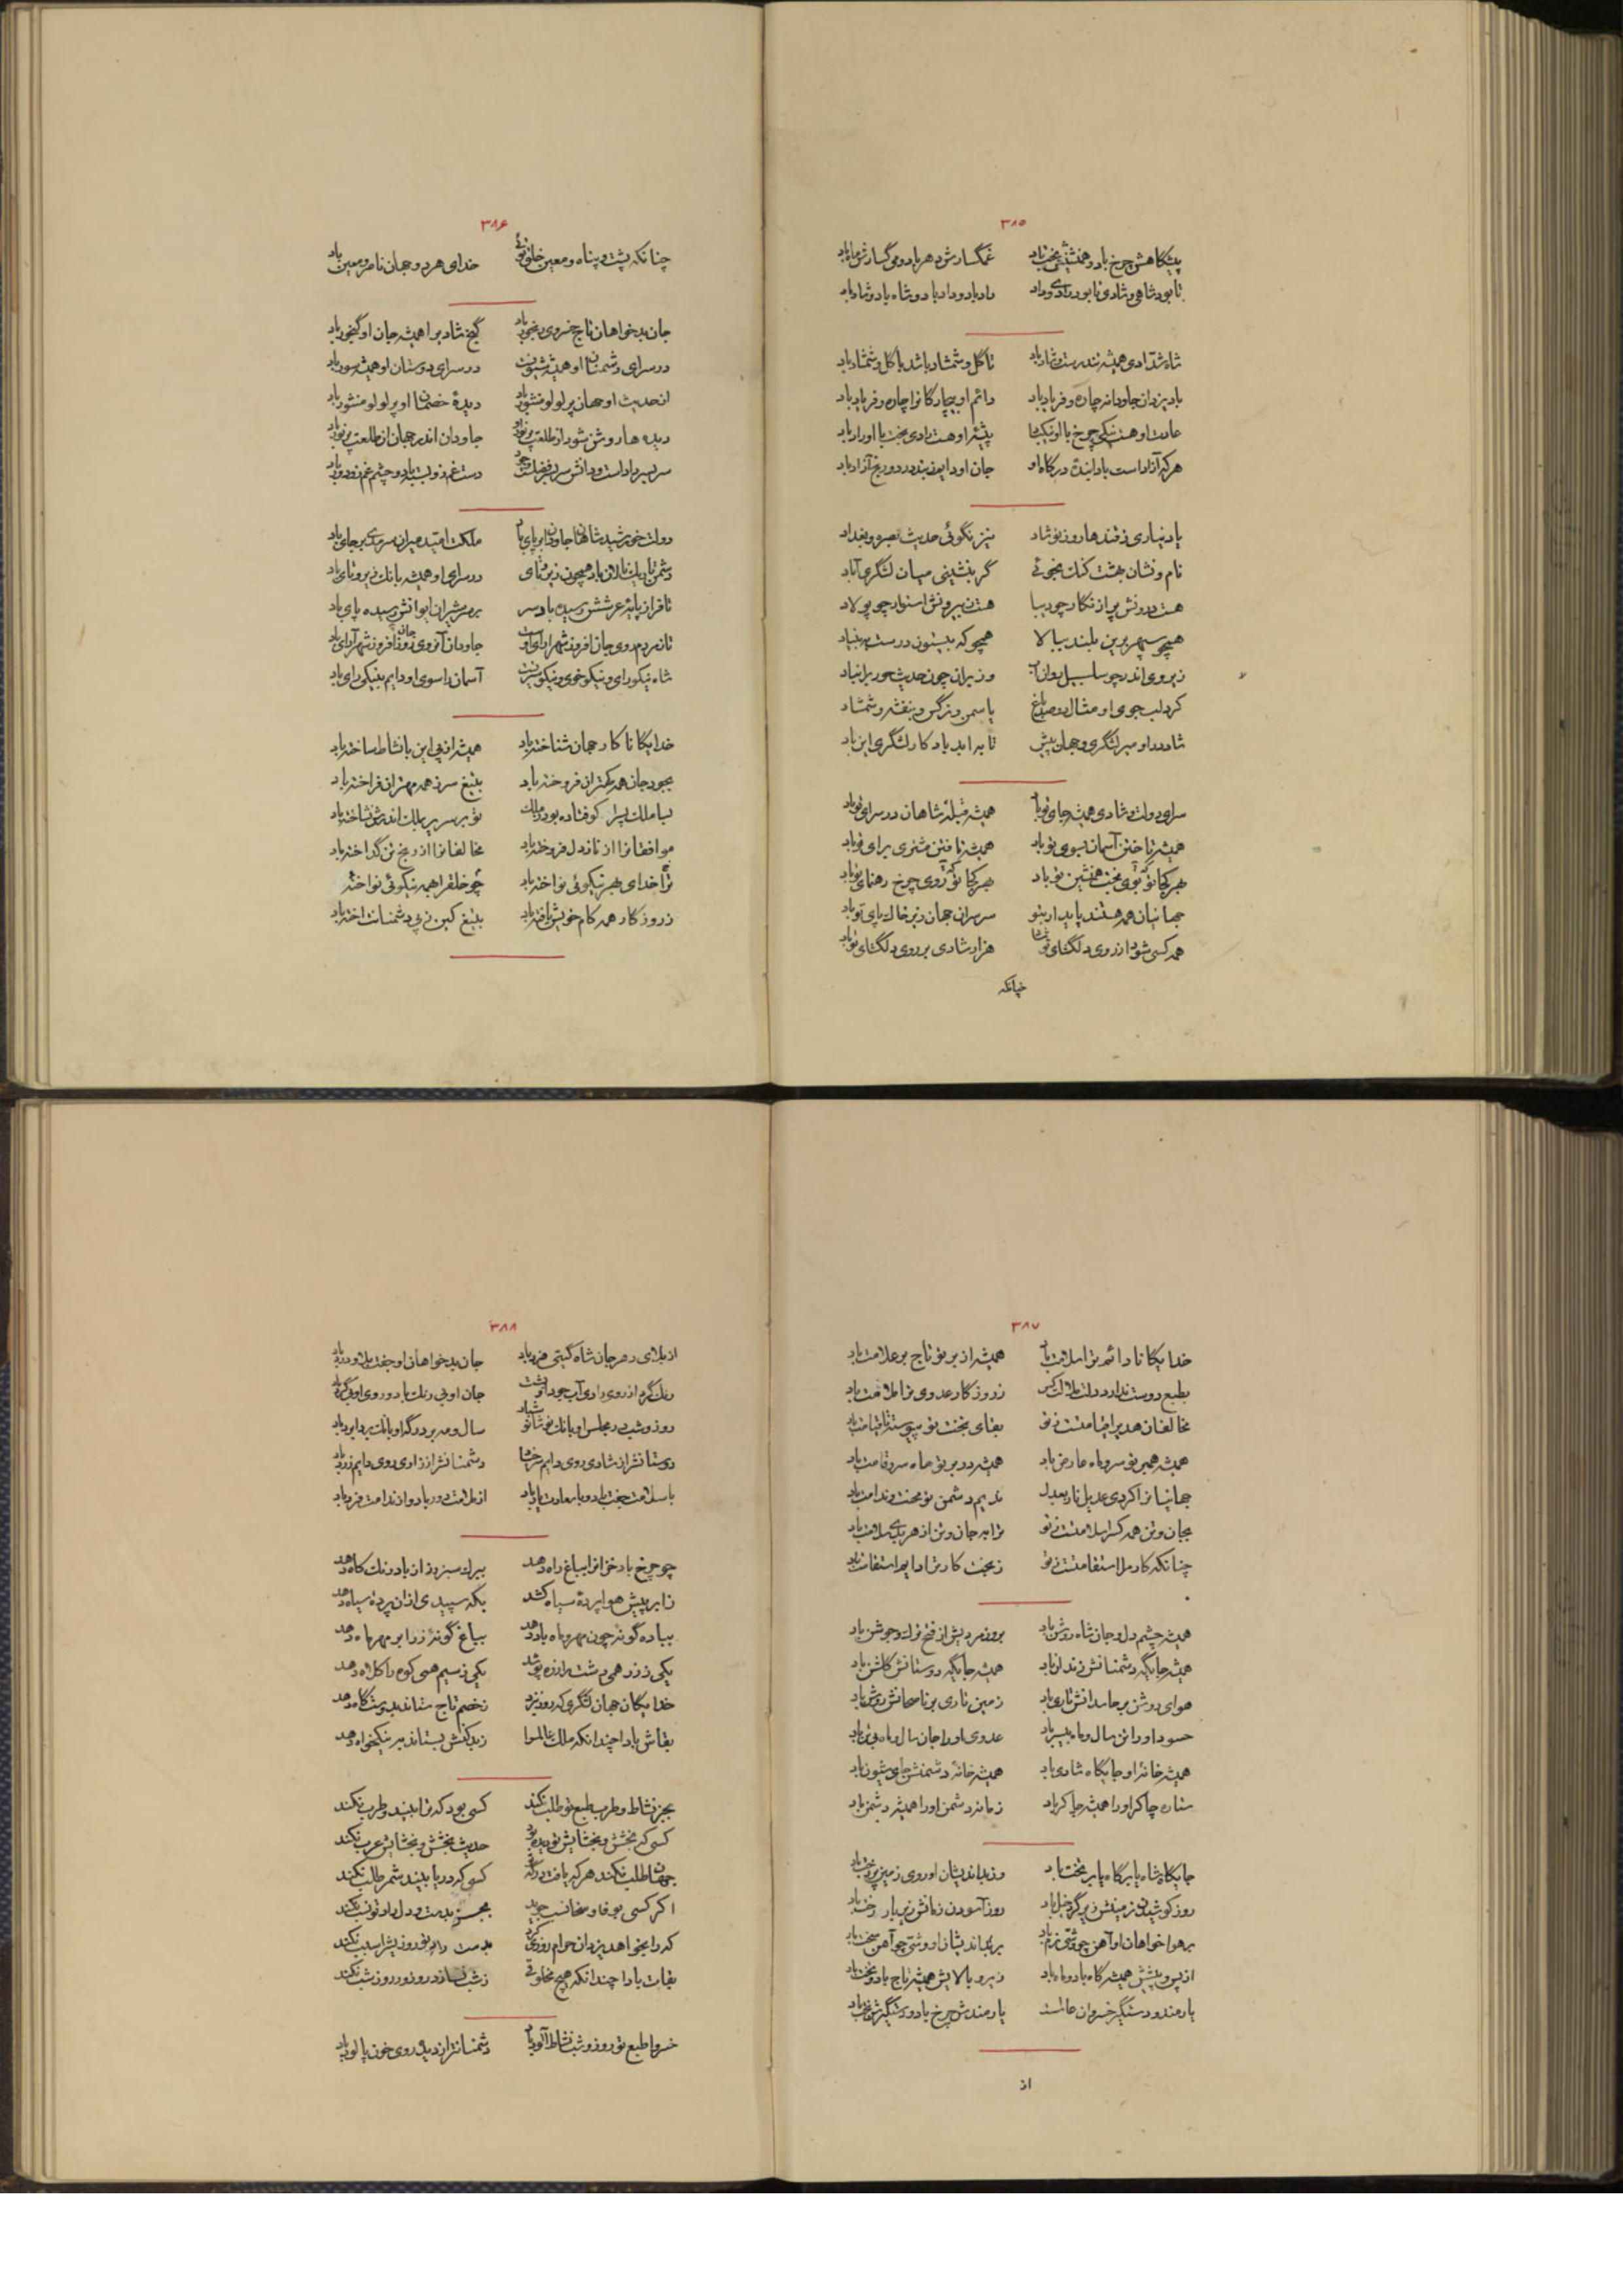 ۳۸۵
پیشگاهش چرخ باد و همنشینش بخت باد غمگسارش دهر باد و می گسارش ماه باد
تا بود شاهی و شادی تا بود رادی و داد راد باد و داد باد و شاه باد و شاد باد
شاه شدادی همیشه تندرست و شاد باد تا گل و شمشاد باشد با گل و شمشاد باد
باد یزدان جاودانه چاره و فریاد باد دائم او بیچارگانرا چاره و فریاد باد
عادت او هست نیکی چرخ با او نیک باد پیشه او هست رادی بخت با او راد باد
هر که آزاد است باد ابندهٔ درگاه او جان او دایم ز بند درد و رنج آزاد باد
یاد نیاری ز قندهار و ز نوشاد نیز نگوئی حدیث بصره و بغداد
نام و نشان بهشت کنک نجوئی گر بنشینی میان لشگری آباد
هست درونش پر از نگار چو دیبا هست ز بیرونش استوار چو پولاد
همچو سپهر برین بلند ببالا همچو که بیستون درست به بنیاد
زیر وی اندر چو سلسبیل روان آب وز بر آن چون حدیث حور پرانباد
کرد لب جوی او مثال دو صد باغ یاسمن و نرگس و بنفشه و شمشاد
شاد در او میر لشگری و جهان پیش تا به ابد باد کار لشگری این باد
سرای دولت و شادی همیشه جای تو باد همیشه قبلهٔ شاهان در سرای تو باد
همیشه تاختن آسمان بسوی تو باد همیشه تافتن مشتری برای تو باد
بهر کجا که توی بخت همنشین تو باد بهر کجا که روی چرخ رهنمای تو باد
جهانیان همه هستند پایدار بتو سر سران جهان زیر خاک پای تو باد
همه کسی شود از روی دلگشای تو شاد هزار شادی بر روی دلگشای تو باد
چنانکه
۳۸۶
چنانکه پشت و پناه و معین خلق توئی خدای هر دو جهان ناصر و معین باد
جان بدخواهان تاج خسروی رنجور باد گنج شادی را همیشه جان او گنجور باد
در سرای دشمنان او همیشه شیونست در سرای دوستان او همیشه سور باد
از حدیث او جهان پر لولو منثور باد دیدهٔ خصمان او پر لولو منثور باد
دیده ها روشن شود از طلعت پر نور او جاودان اندر جهان از طلعتش پر نور باد
سر بسر داد است و دانش سر بسر فضلست و جود دست غم زو بسته باد و چشم غم زو دور باد
دولت خورشید شاهان جاودان بر پای باد ملکت امید میران سرمدی بر جای باد
دشمن تاریک نالان باد همچون زیر نای در سرای او همیشه بانگ زیر و نای باد
تا فراز پایهٔ عرشش رسیده باد سر بر سر شیران ایوانش رسیده پای باد
تا ز مردم روی جان افروز شهر آرای اوست جاودان آن روی جان افروز شهر آرای باد
شاه نیکو رای و نیکو خوی و نیکو سیرتست آسمان را سوی او دایم بنیکی رای باد
خدایگانا کار جهان شناخته باد همیشه از پی این با نشاط ساخته باد
بجود جان همه کهتران فروخته باد بتیغ سر ز همه مهتران فراخته باد
موافقانرا از ناز دل فروخته باد مخالفانرا از رنج تن گداخته باد
ترا خدای بهر نیکوئی نواخته باد چو خلقرا همه نیکوئی نواخته
ز روزگار همه کام خویش یافته باد بتیغ کین ز پی دشمنانت آخته باد
۳۸۷
خدایگانا دائم ترا سلامت باد همیشه از بر تو تاج بر علامت باد
بطبع دوست ندارد دولت ملامت کس ز روزگار عدوی ترا ملامت باد
مخالفان هدی را قیامتست ز تو بقای بخت تو پیوسته تا قیامت باد
همیشه همبر تو سرو ماه عارض باد همیشه در بر تو ماه سرو قامت باد
جهانیانرا کردی عدیل ناز بعدل ندیم دشمن تو محنت و ندامت باد
بجان و تن همه کسرا سلامتست ز تو ترا به جان و تن از هر بدی سلامت باد
چنانکه کار ملک را استقامتست ز تو ز بخت کار ترا دایم استقامت باد
همیشه چشم دل و جان شاه روشن باد
همیشه جایگه دشمنانش زندان باد همیشه جایگه دوستانش گلشن باد
هوای روشن بر حاسدانش تاری باد زمین تاری بر ناصحانش روشن باد
حسود او را تن سال و ماه بیسر باد عدوی او را جان سال و ماه بی تن باد
همیشه خانهٔ او جایگاه شادی باد همیشه خانهٔ دشمنش جای شیون باد
ستاره چاکر او را همیشه چاکر باد زمانه دشمن او را همیشه دشمن باد
جایگاه شاه یا بر گاه یا بر تخت باد وز بد اندیشان او روی زمین پردخت باد
روز کوشیدن زمینش زیر گرد خیل باد روز آسودن زمانش زیر بار رخت باد
بر هواخواهان او آهن چو وشی نرم باد بر بد اندیشان او وشی چو آهن سخت باد
از پس و پیشش همیشه گاه باد و ماه باد زیر و بالایش همیشه تاج باد و تخت باد
یارمند و دستگیر خسروان یارمندش چرخ باد و دستگیرش بخت باد
از
۳۸۸
از بلای دهر جان شاه گیتی فرد باد جان بدخواهان او جفت بلا و درد باد
روز و شب در مجلس او بانگ نوشانوش باد سال و مه بر درگه او بانگ بردابرد باد
دوستانش را ز شادی روی دایم سرخ باد دشمنانش را ز زاری روی دایم زرد باد
با سلامت جفت باد و با سعادت یار باد از ملامت دور باد و از ندامت فرد باد
چو چرخ باد خزانرا بباغ راه دهد ببرگ سبز رز از باد رنگ کاه دهد
ز ابر پیش هوا پردهٔ سیاه کشد بکه سپیدی از ان پردهٔ سیاه دهد
بباده گونهٔ چون مهر و ماه باد دهد بباغ گونهٔ زر ابر مهر ماه دهد
یکی ز زر همی دشت را زره پوشد یکی ز سیم همی کوه را کلاه دهد
خدایگان جهان لشگری که روز نبرد ز خصم تاج ستاند بدوست گاه دهد
بقاش بادا چندانکه ملک عالم را ز بدکنش بستاند به نیکخواه دهد
بجز نشاط و طرب طبع تو طلب نکند کسی بود که ترا بیند و طرب نکند
کسی که بخشش و بخشایش تو دیده بود حدیث بخشش و بخشایش عرب نکند
جهان طلب نکند هر که یافت درگه تو کسی که دریا بیند شمر طلب نکند
اگر کسی بوفا و سخا نسب جوید بجز بدست و دل راد تو نسب نکند
که را بخواهد یزدان حرام روزی کرد
بقات بادا چندانکه هیچ مخلوقی ز شب نسازد روز و ز روز شب نکند
خسروا طبع تو روز و شب نشاط آلود باد دشمنانت را ز دیده روی خون پالود باد